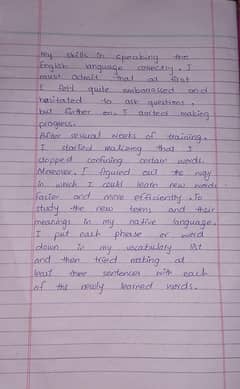 my skills in speaking the
English language correctly. I
must admit that at first
I felt quite embarrassed and
hesitated to ask questions,
but further on, I started making
progress.
After several weeks of training,
I started realizing that I
stopped confusing certain words.
Moreover, I figured out the way
in which I could learn new words
faster and more efficiently. To
study the new terms and their
meanings in my native language,
I put each phrase or word
down in my vocabulary list
and then tried making at
least three sentences with each
of the newly learned words.